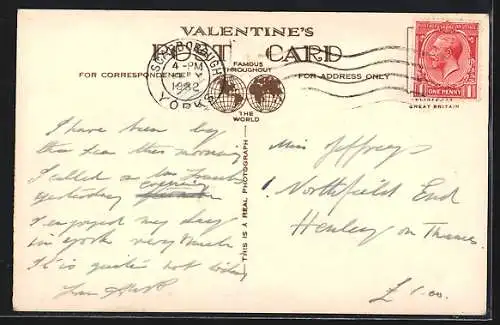 VALENTINE'S
POST CARD
FOR CORRESPONDENCE
FAMOUS
THROUGHOUT
THE
WORLD
FOR ADDRESS ONLY
SCARBOROUGH
4 - PM
1932
YORKS
ONE PENNY
GREAT BRITAIN
THIS IS A REAL PHOTOGRAPH
I have been by
the sea this morning
I called on
yesterday evening
I enjoyed my day
in york very much
It is quite hot today
Miss Jeffreys
Northfield End
Henley on Thames
£1.00.